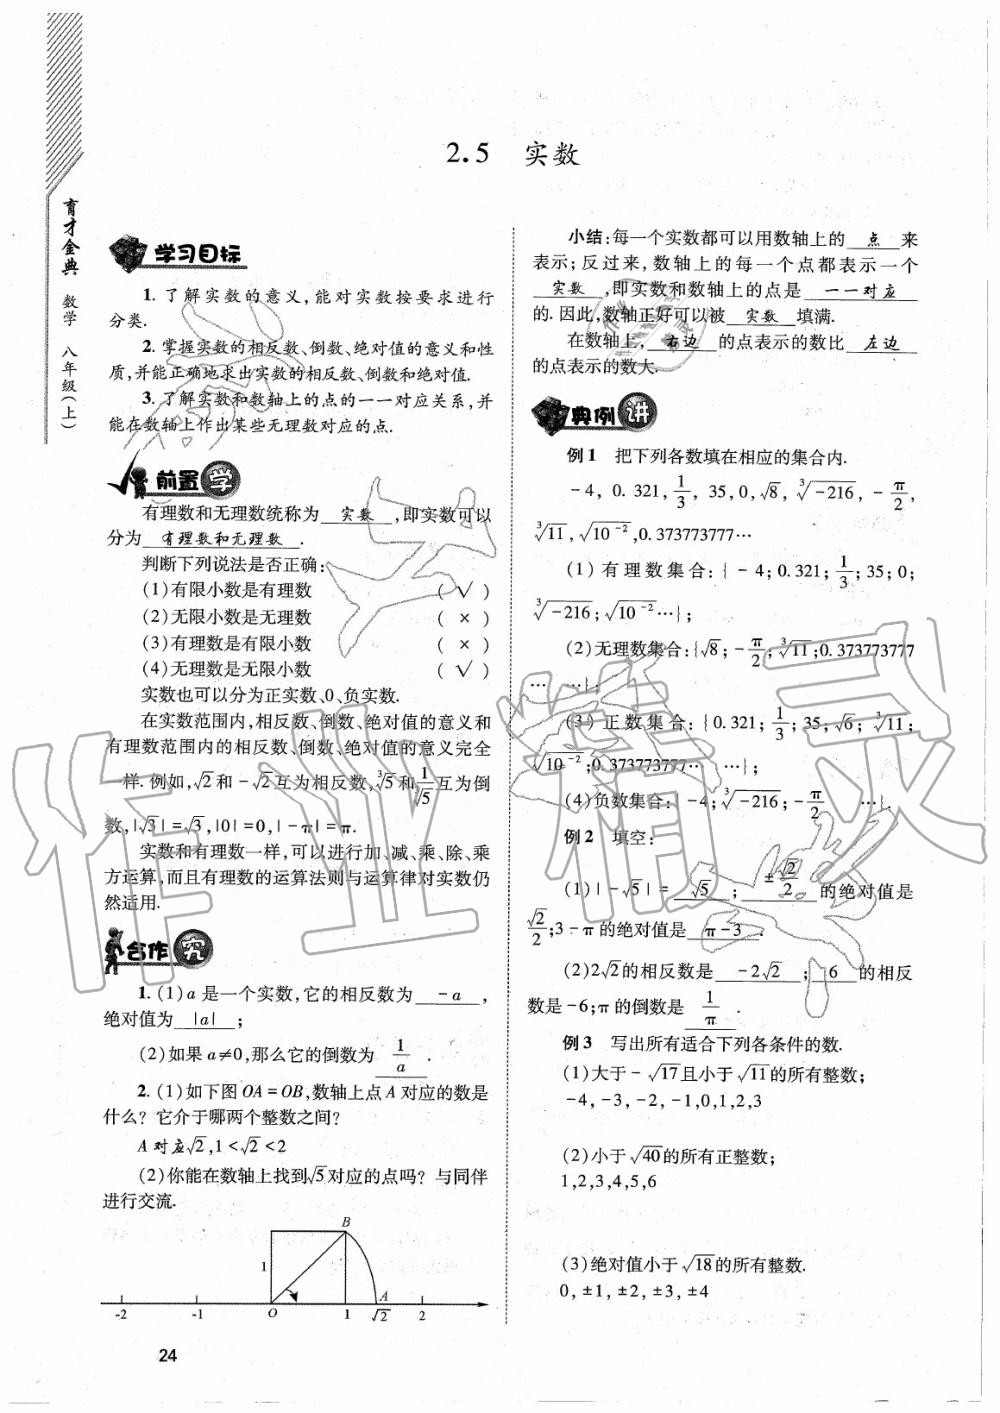 2.5 实数
育才金典 数学 八年级(上)
学习目标
1. 了解实数的意义,能对实数按要求进行
分类.
2. 掌握实数的相反数、倒数、绝对值的意义和性
质,并能正确地求出实数的相反数、倒数和绝对值.
3. 了解实数和数轴上的点的一一对应关系,并
能在数轴上作出某些无理数对应的点.
前置 学
有理数和无理数统称为 实数 ,即实数可以
分为 有理数和无理数 .
判断下列说法是否正确:
(1)有限小数是有理数 ( √ )
(2)无限小数是无理数 ( × )
(3)有理数是有限小数 ( × )
(4)无理数是无限小数 ( √ )
实数也可以分为正实数、0、负实数.
在实数范围内,相反数、倒数、绝对值的意义和
有理数范围内的相反数、倒数、绝对值的意义完全
一样. 例如,√2和-√2互为相反数,∛5和1/∛5互为倒
数,|√3|=√3,|0|=0,|-π|=π.
实数和有理数一样,可以进行加、减、乘、除、乘
方运算,而且有理数的运算法则与运算律对实数仍
然适用.
合作 究
1. (1)a 是一个实数,它的相反数为 -a ,
绝对值为 |a| ;
(2)如果 a≠0,那么它的倒数为 1/a .
2. (1)如下图 OA=OB,数轴上点 A 对应的数是
什么? 它介于哪两个整数之间?
A 对应√2,1<√2<2
(2)你能在数轴上找到√5对应的点吗? 与同伴
进行交流.
B
1
A
-2 -1 O 1 √2 2
24
小结:每一个实数都可以用数轴上的 点 来
表示;反过来,数轴上的每一个点都表示一个
实数 ,即实数和数轴上的点是 一一对应
的. 因此,数轴正好可以被 实数 填满.
在数轴上, 右边 的点表示的数比 左边
的点表示的数大.
典例 讲
例1 把下列各数填在相应的集合内.
-4, 0.321, 1/3, 35, 0, √8, ∛-216, -π/2,
∛11, √10⁻², 0.373773777…
(1) 有理数集合: {-4; 0.321; 1/3; 35; 0;
∛-216; √10⁻² …};
(2)无理数集合:{√8; -π/2; ∛11; 0.373773777
… …};
(3) 正数集合: {0.321; 1/3; 35; √6; ∛11;
√10⁻²; 0.373773777… …};
(4)负数集合: {-4; ∛-216; -π/2 …}.
例2 填空:
(1)|-√5|= √5 ; ±√2/2 的绝对值是
√2/2;3-π的绝对值是 π-3 .
(2)2√2的相反数是 -2√2 ; 6 的相反
数是-6;π的倒数是 1/π .
例3 写出所有适合下列各条件的数.
(1)大于-√17且小于√11的所有整数;
-4,-3,-2,-1,0,1,2,3
(2)小于√40的所有正整数;
1,2,3,4,5,6
(3)绝对值小于√18的所有整数.
0, ±1, ±2, ±3, ±4
作业精灵